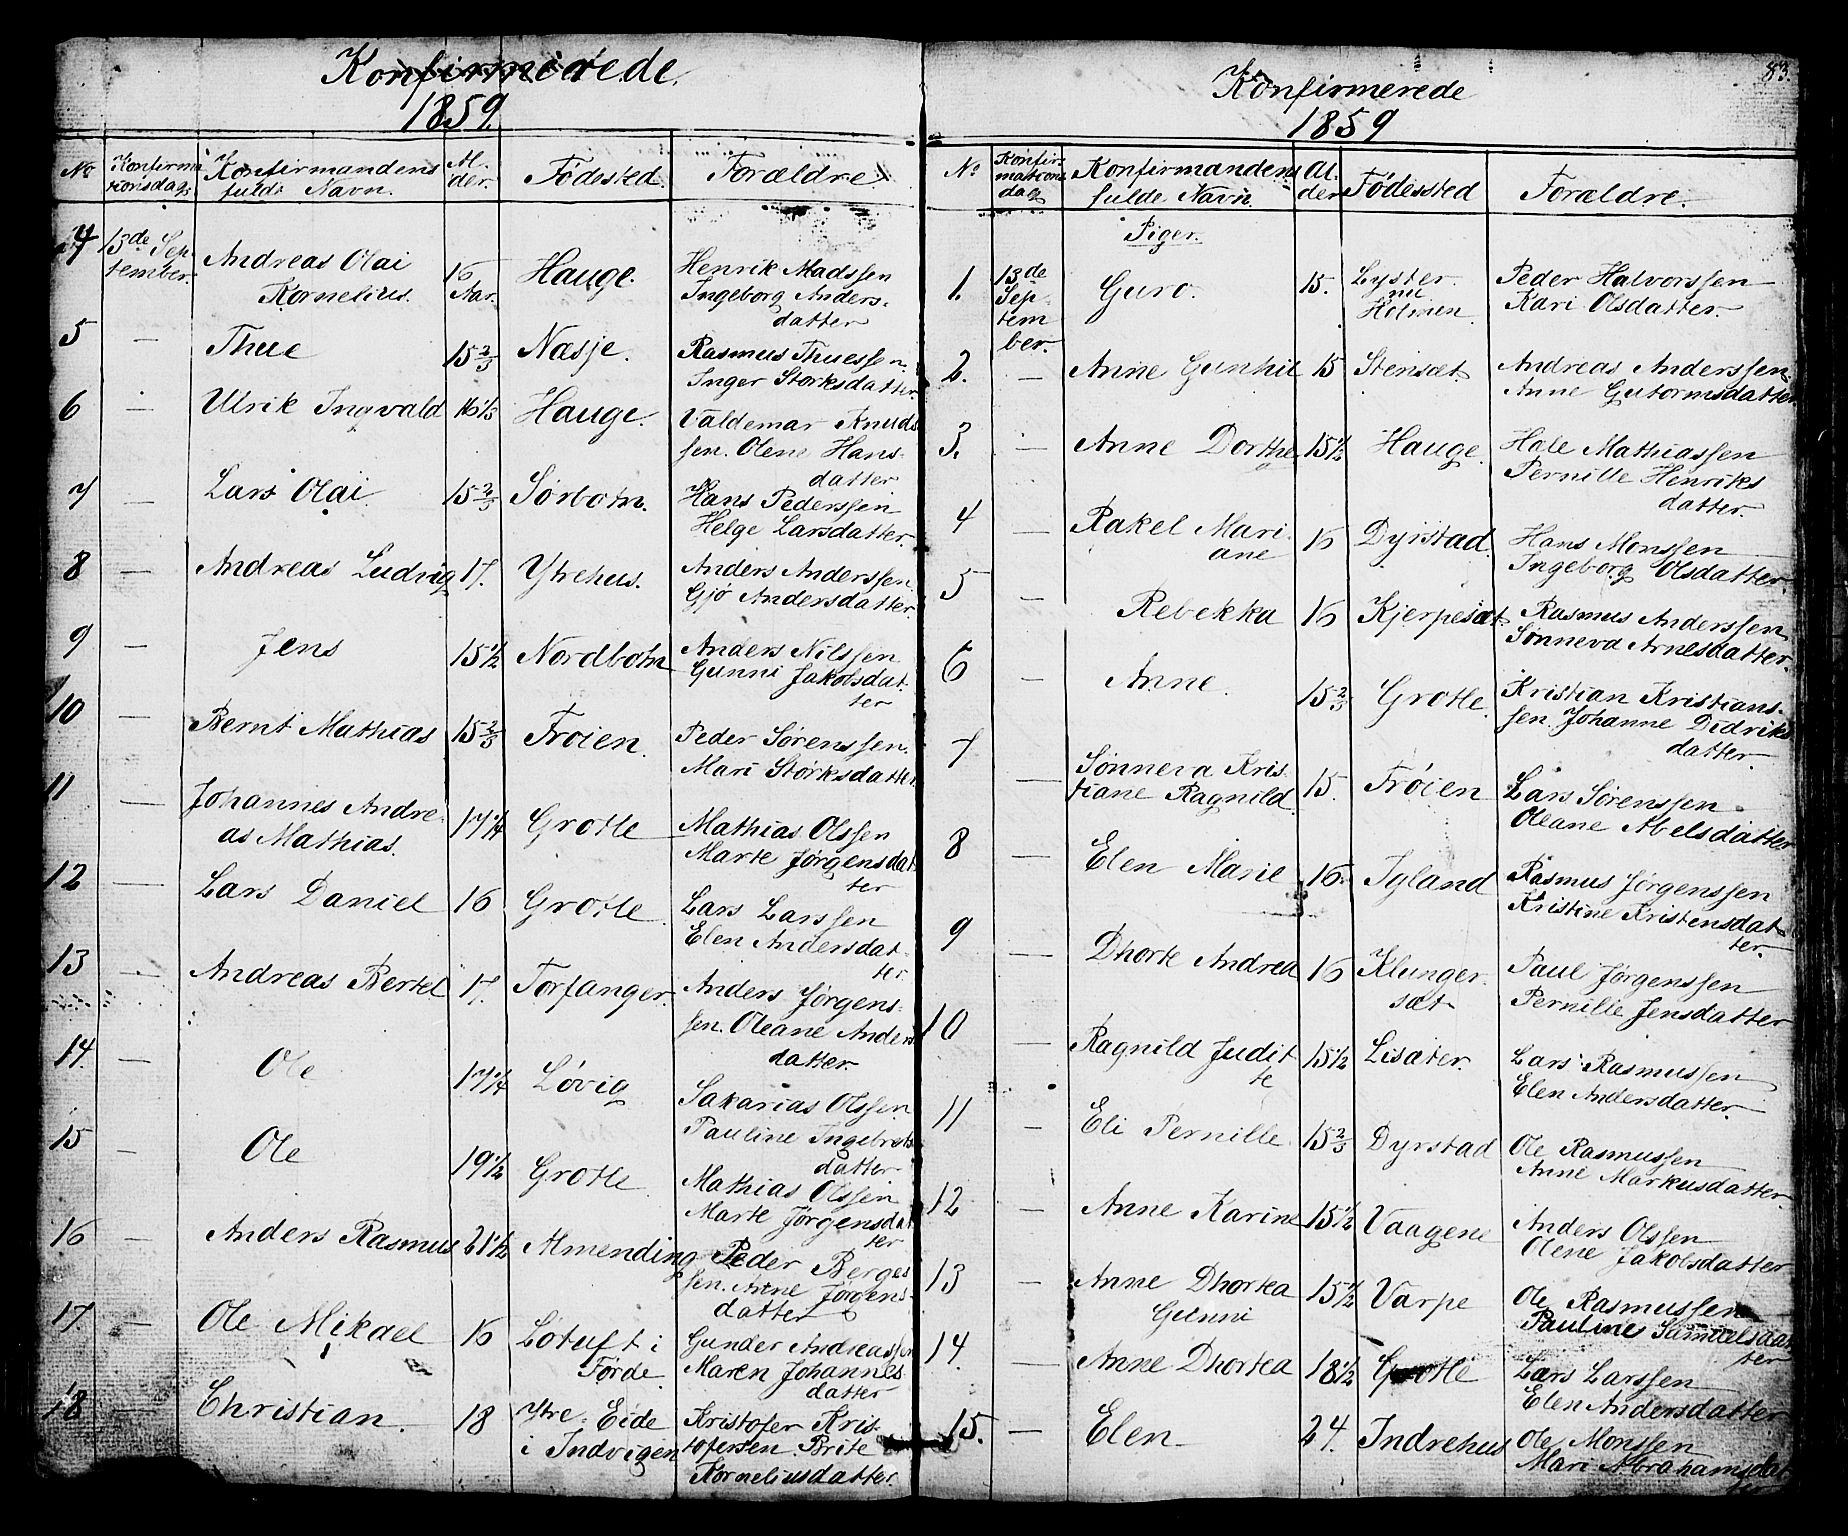 Konfirmerede.
1859.
No
Konfirma
tionsdag.
Konfirmandens
fulde Navn.
Al-
der.
Fødested.
Forældre.
4 13de Sep-
tember.
Andreas Olai
Kornelius.
16
Aar.
Hauge.
Henrik Madssen
Ingeborg Anders-
datter
5 — Thue 15 2/3 Næsje. Rasmus Thuessen.
Inger Størksdatter
6 — Ulrik Ingvald 16 1/3 Hauge. Valdemar Knuds
sen. Olene Hans-
datter
7 — Lars Olai 15 2/3 Sørbotn. Hans Pederssen
Helge Larsdatter.
8 — Andreas Ludvig 17. Ytrehus. Anders Anderssen
Gjø Andersdatter.
9 — Jens 15 1/2 Nordbotn Anders Nilssen
Gunni Jakobsdat-
ter
10 — Bernt Mathias 15 2/3 Frøien. Peder Sørenssen.
Mari Størksdatter
11 — Johannes Andre-
as Mathias.
17 1/4 Grotle Mathias Olssen
Marte Jørgensdat
ter
12 — Lars Daniel 16 Grotle. Lars Larssen
Elen Andersdat-
ter
13 — Andreas Bertel 17. Torfanger. Anders Jørgens-
sen. Oleane Anders
datter.
14. — Ole 17 1/4 Løvig Sakarias Olssen
Pauline Ingebrets
datter
15 — Ole 19 1/2 Grotle. Mathias Olssen
Marte Jørgensdat
ter
16 — Anders Rasmus 21 1/2 Almending Peder Berges
sen. Anne Jørgens-
datter
17. — Ole Mikael 16 Løtuft i
Førde.
Gunder Andreassen
Maren Johannes
datter
18 — Christian. 18 Ytre-Eide
i Indvigen
Kristofer Kris-
tofersen. Brite
Korneliusdatter.
83.
Konfirmerede
1859
No
Konfir-
mations
dag
Konfirmandens
fulde Navn.
Al-
der
Fødessted
Forældre.
Piger.
1. 13de
Sep-
tem
ber.
Guro. 15. Lyster
nu
Holmen.
Peder Halvorssen
Kari Olsdatter.
2. — Anne Gunhil 15 Stensæt Andreas Anderssen
Anne Gutormsdatter
3. — Anne Dorthe 15 1/2 Hauge. Hole Mathiassen
Pernille Henriks
datter.
4 — Rakel Mari-
ane
16 Dyrstad. Hans Monssen
Ingeborg Olsdatter.
5 Rebekka 16 Kjerpesæt. Rasmus Anderssen
Sønneva Arnesdatter.
6 — Anne. 15 2/3 Grotle. Kristian Kristians-
sen. Johanne Didriks
datter.
7 — Sønneva Kris-
tiane Ragnild.
15. Frøien Lars Sørenssen
Oleane Abelsdatter
8 — Elen Marie 16. Igland Rasmus Jørgenssen
Kristine Kristensdat-
ter.
9 — Dhorte Andrea 16 Klunger-
sæt
Paul Jørgenssen
Pernille Jensdatter
10 — Ragnild Judit
te
15 1/2 Lisæter. Lars Rasmussen
Elen Andersdatter.
11 — Eli Pernille. 15 2/3 Dyrstad Ole Rasmussen
Anne Markusdatter.
12 — Anne Karine 15 1/2 Vaagene Anders Olssen
Olene Jakobsdatter
13 — Anne Dhortea
Gunni
15 1/2 Varpe Ole Rasmussen
Pauline Samuelsdat
ter
14. — Anne Dhortea 18 1/2 Grotle Lars Larssen
Elen Andersdatter
15. — Elen 24. Indrehus Ole Monssen
Mari Abrahamsdat
ter